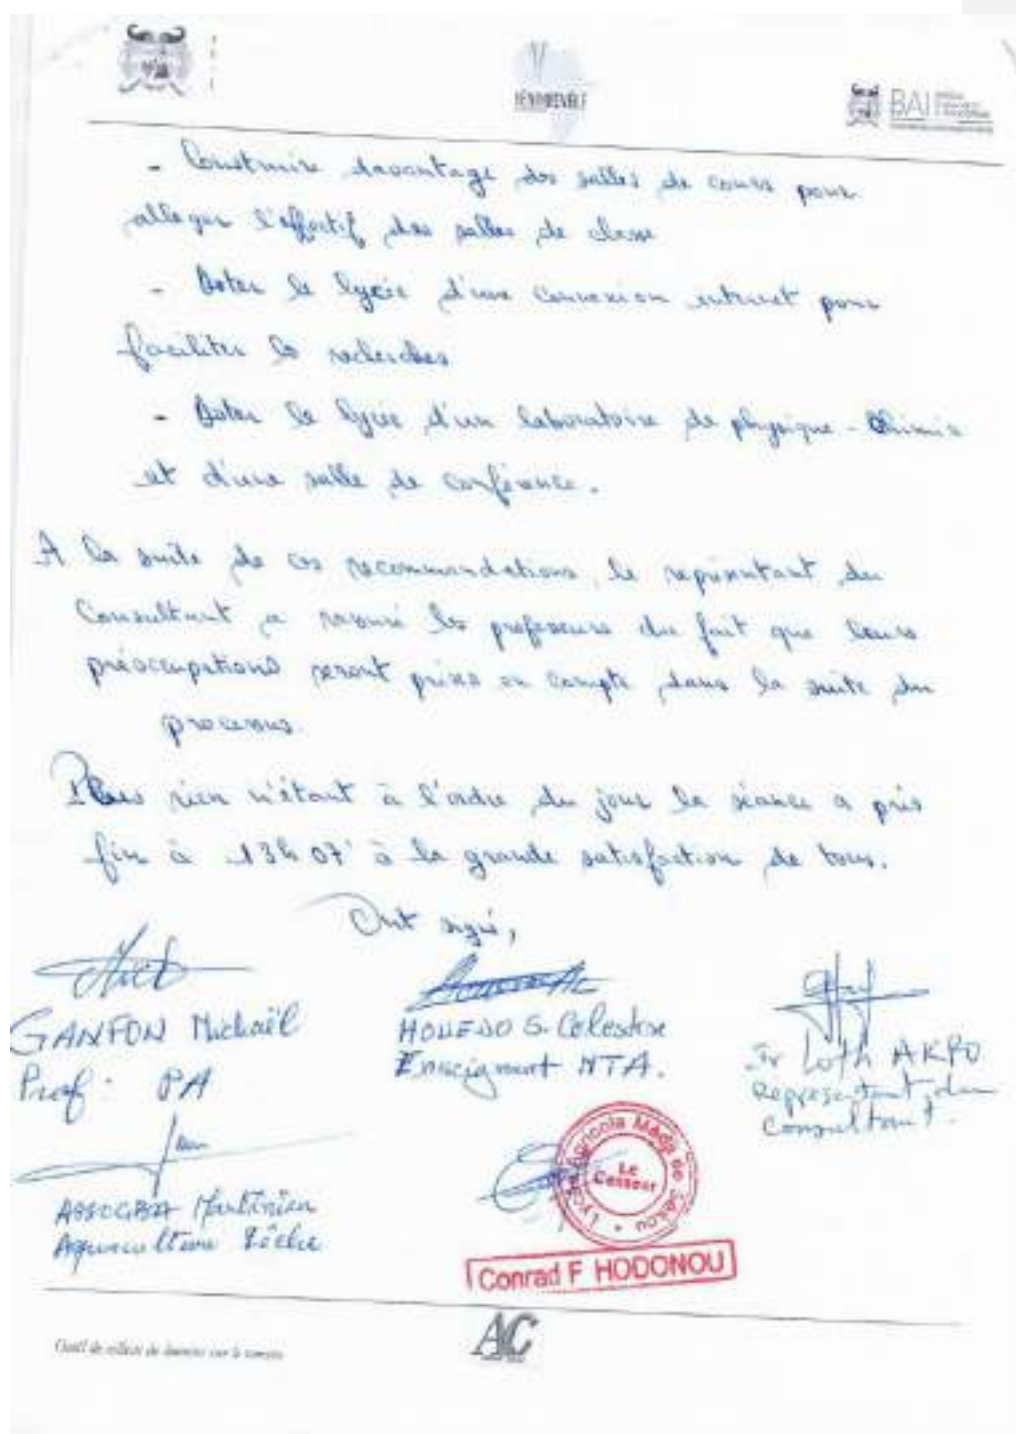 BAI
- Construire davantage des salles de cours pour
alléger l'effectif des salles de classe
- Doter le lycée d'une connexion internet pour
faciliter les recherches
- Doter le lycée d'un laboratoire de physique-chimie
et d'une salle de conférence.
A la suite de ces recommandations, le représentant du
Consultant a rassuré les professeurs du fait que leurs
préoccupations seront prises en compte dans la suite du
processus.
Plus rien n'étant à l'ordre du jour la séance a pris
fin à 13h 07' à la grande satisfaction de tous.
Ont signé,
GANFON Michaël
Prof: PA
HOUEDO S. Celestine
Enseignant NTA.
Loth AKPO
Représentant du
Consultant.
ASSOGBA Martinien
Aquaculture Pêche
Lycée Agricole Médji de Sékou
Le
Censeur
Conrad F HODONOU
AC
Outil de collecte de données sur le terrain